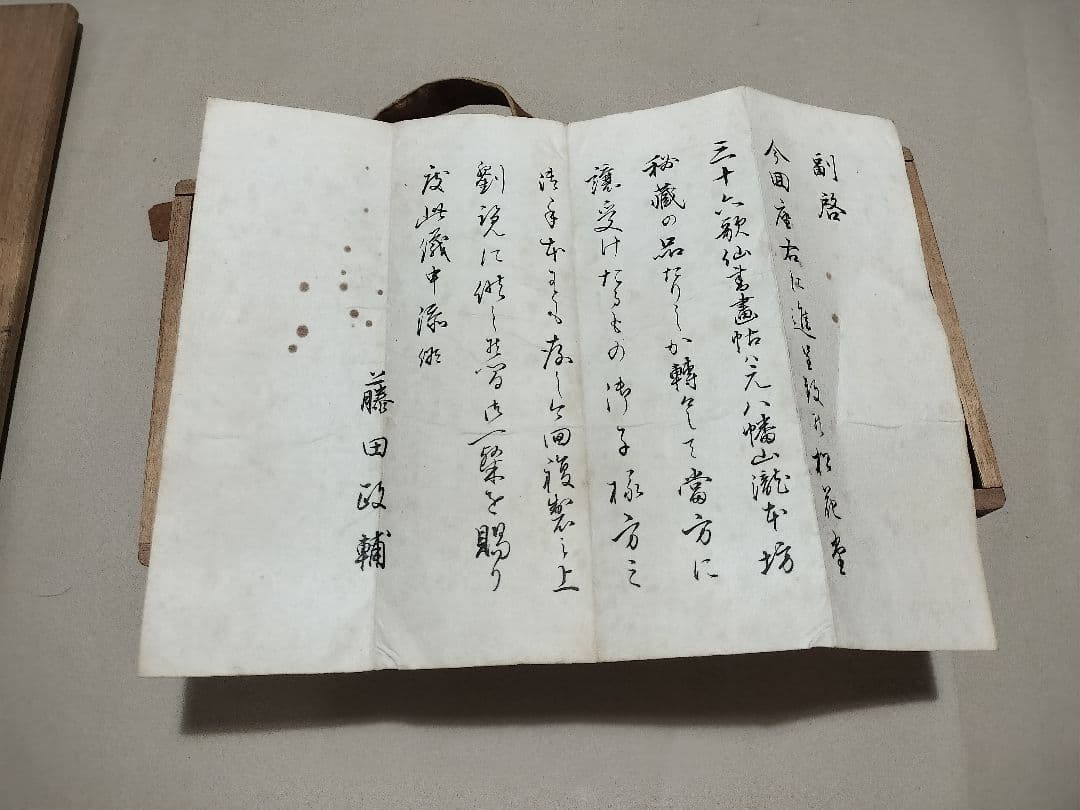 副啓
今回座右に進呈致候松花堂
三十六歌仙書畫帖ハ元八幡山瀧本坊
秘藏の品なりしが轉々して當方に
譲受けたるもの御子様方之
御手本にも存し今回複製之上
劉覧に供し候間御一粲を賜り
度此儀申添候
藤田政輔